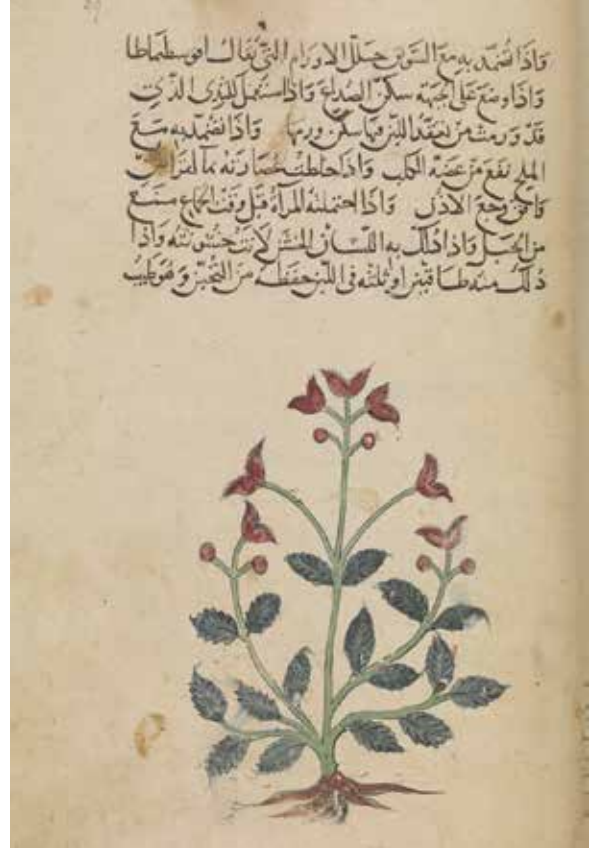 واذا تضمد به مع السويق حلل الاورام التي يقال لها فوسطماطا
واذا وضع على الجبهة سكن الصداع واذا استعمل للثدي الذي
قد ورمت من تعقد اللبن فيها سكن ورمها واذا تضمد به مع
الملح نفع من عضة الكلب واذا خلطت عصارته بما
وافق وجع الاذن واذا احتملته المرأة قبل وقت الجماع منع
من الحبل واذا دلك به اللسان الخشن لانت خشونته واذا
دلك منه طاقتين او ثلثه في اللبن حفظه من التجبن وهو طيب